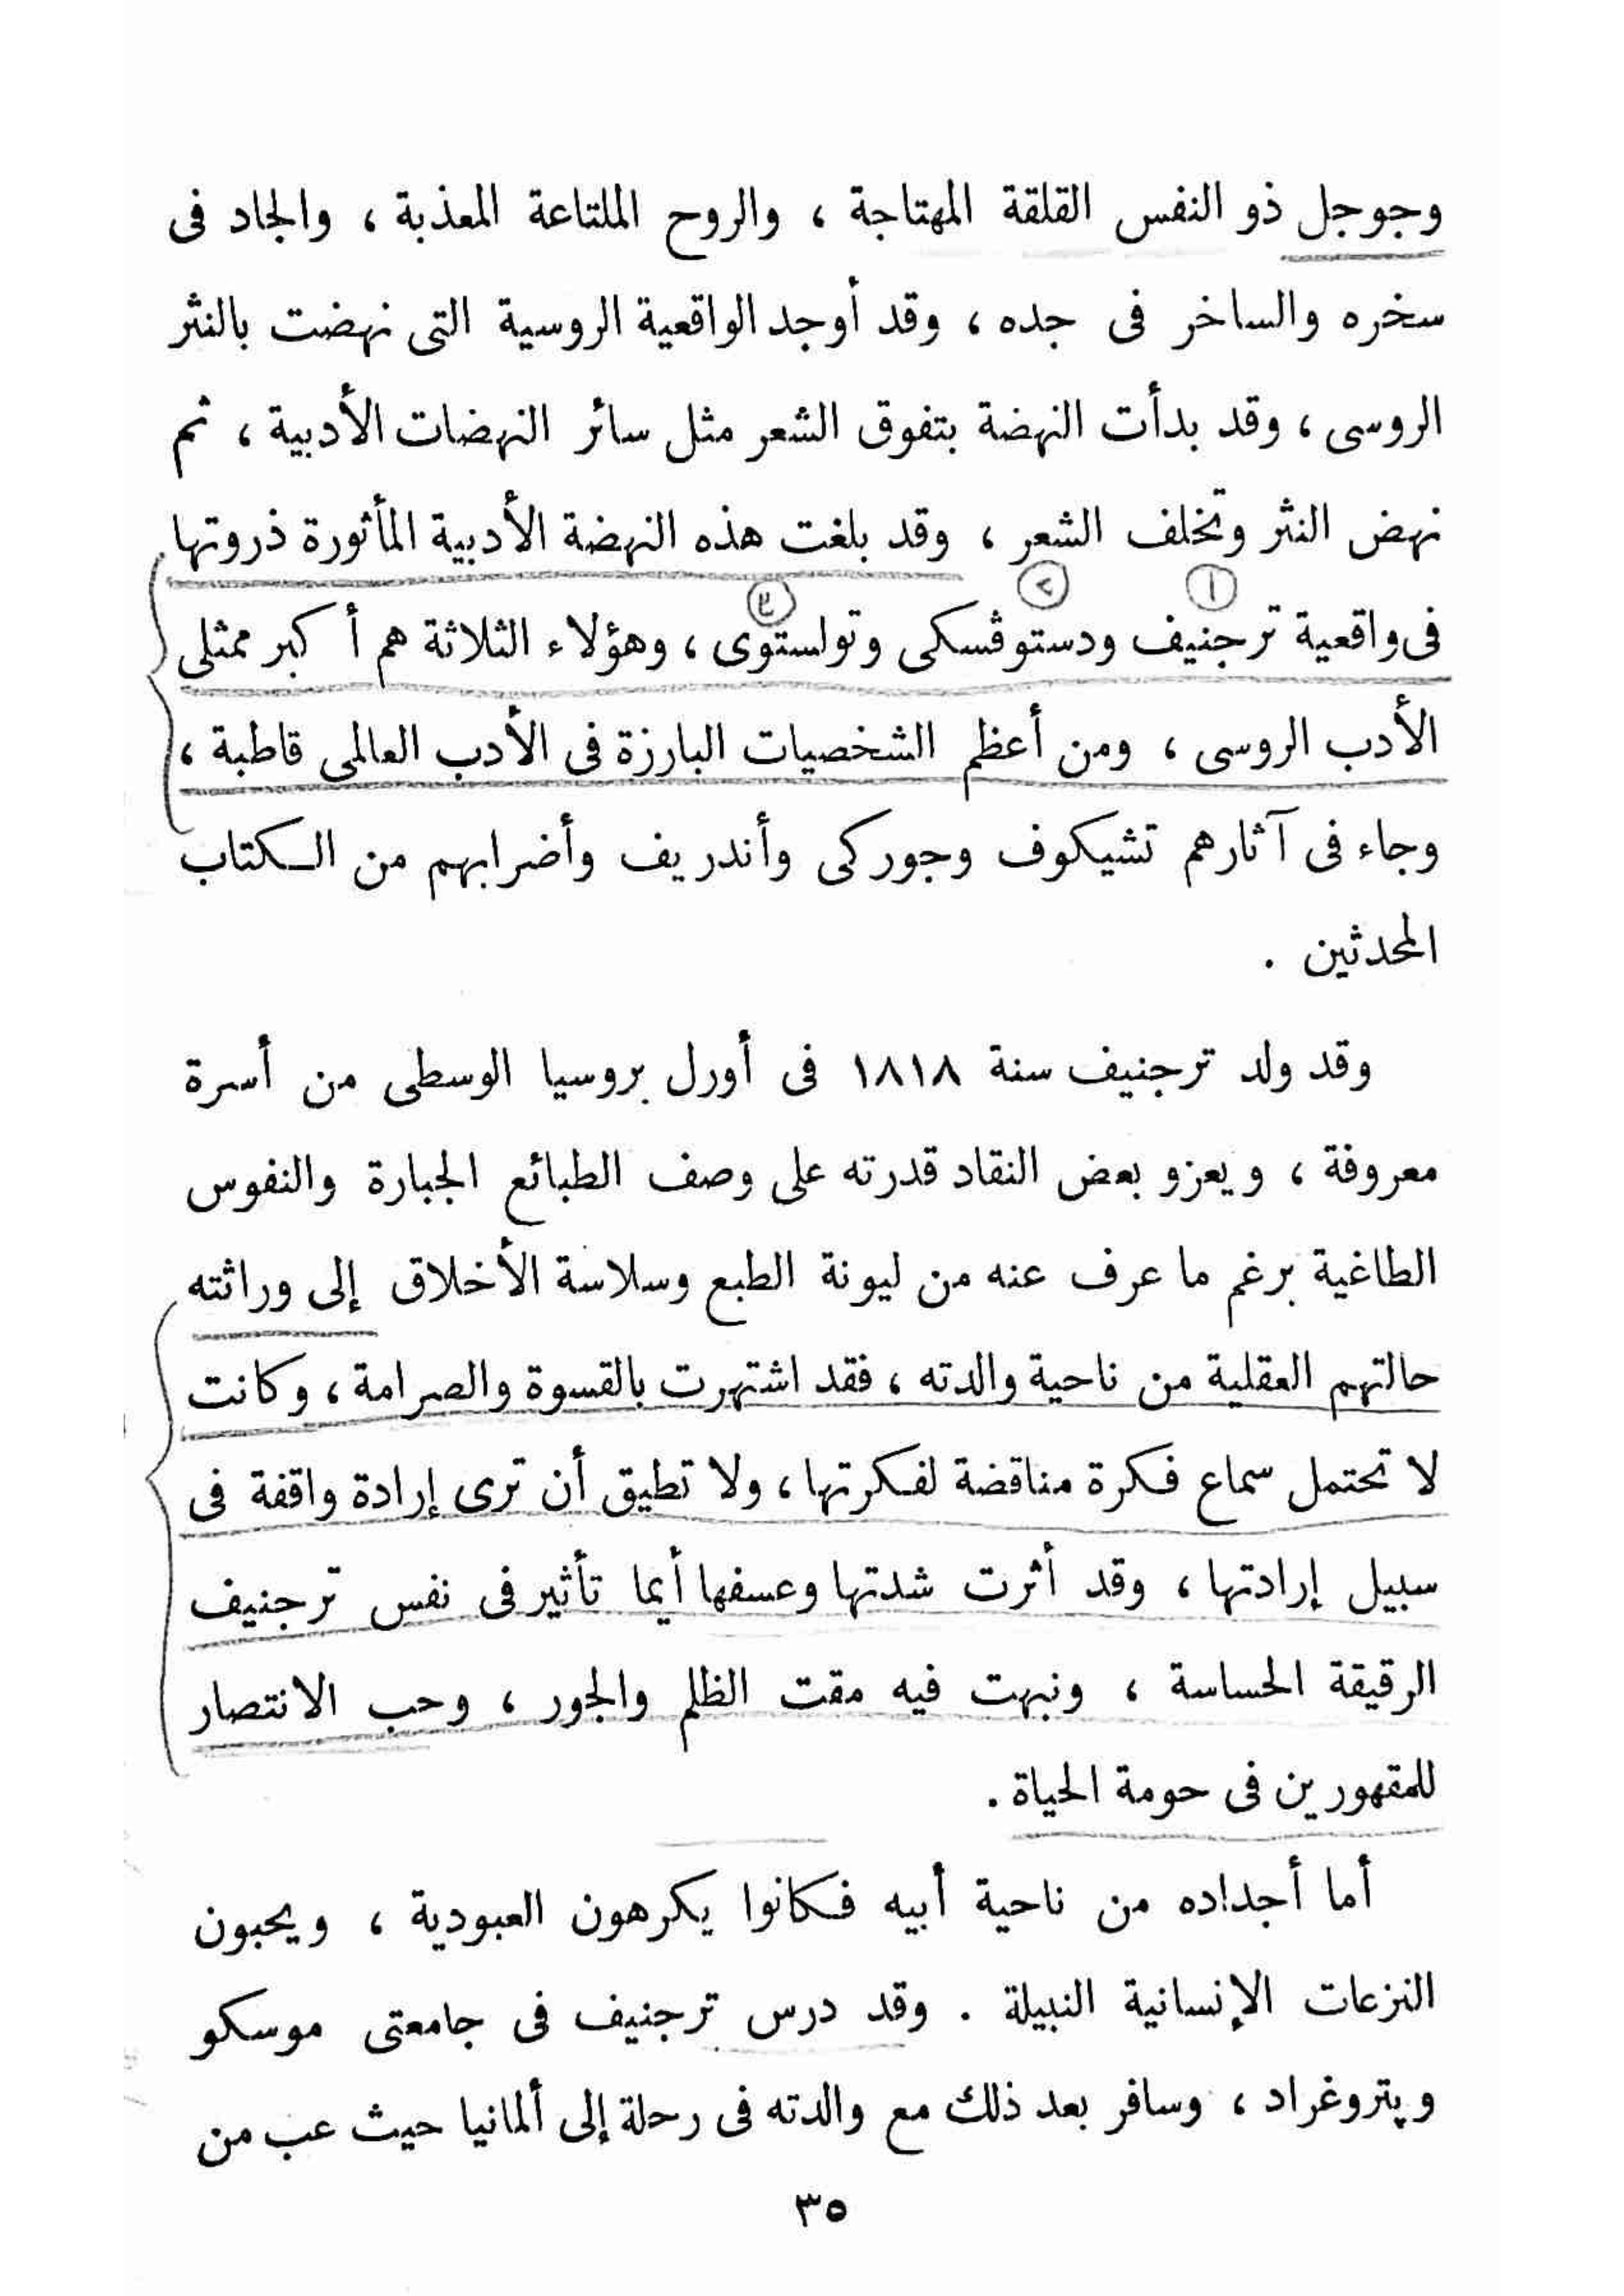 وجوجل ذو النفس القلقة المهتاجة ، والروح الملتاعة المعذبة ، والجاد فى
سخره والساخر فى جده ، وقد أوجد الواقعية الروسية التى نهضت بالنثر
الروسى ، وقد بدأت النهضة بتفوق الشعر مثل سائر النهضات الأدبية ، ثم
نهض النثر وتخلف الشعر ، وقد بلغت هذه النهضة الأدبية المأثورة ذروتها
١ ٢ ٣
فى واقعية ترجنيف ودستوڤسكى وتولستوى ، وهؤلاء الثلاثة هم أكبر ممثلى
الأدب الروسى ، ومن أعظم الشخصيات البارزة فى الأدب العالمى قاطبة ،
وجاء فى آثارهم تشيكوف وجوركى وأندريف وأضرابهم من الكتاب
المحدثين .
وقد ولد ترجنيف سنة ١٨١٨ فى أورل بروسيا الوسطى من أسرة
معروفة ، ويعزو بعض النقاد قدرته على وصف الطبائع الجبارة والنفوس
الطاغية برغم ما عرف عنه من ليونة الطبع وسلاسة الأخلاق إلى وراثته
حالتهم العقلية من ناحية والدته ، فقد اشتهرت بالقسوة والصرامة ، وكانت
لا تحتمل سماع فكرة مناقضة لفكرتها ، ولا تطيق أن ترى إرادة واقفة فى
سبيل إرادتها ، وقد أثرت شدتها وعسفها أيما تأثير فى نفس ترجنيف
الرقيقة الحساسة ، ونبهت فيه مقت الظلم والجور ، وحب الانتصار
للمقهورين فى حومة الحياة .
أما أجداده من ناحية أبيه فكانوا يكرهون العبودية ، ويحبون
النزعات الإنسانية النبيلة . وقد درس ترجنيف فى جامعتى موسكو
وپتروغراد ، وسافر بعد ذلك مع والدته فى رحلة إلى ألمانيا حيث عب من
٣٥